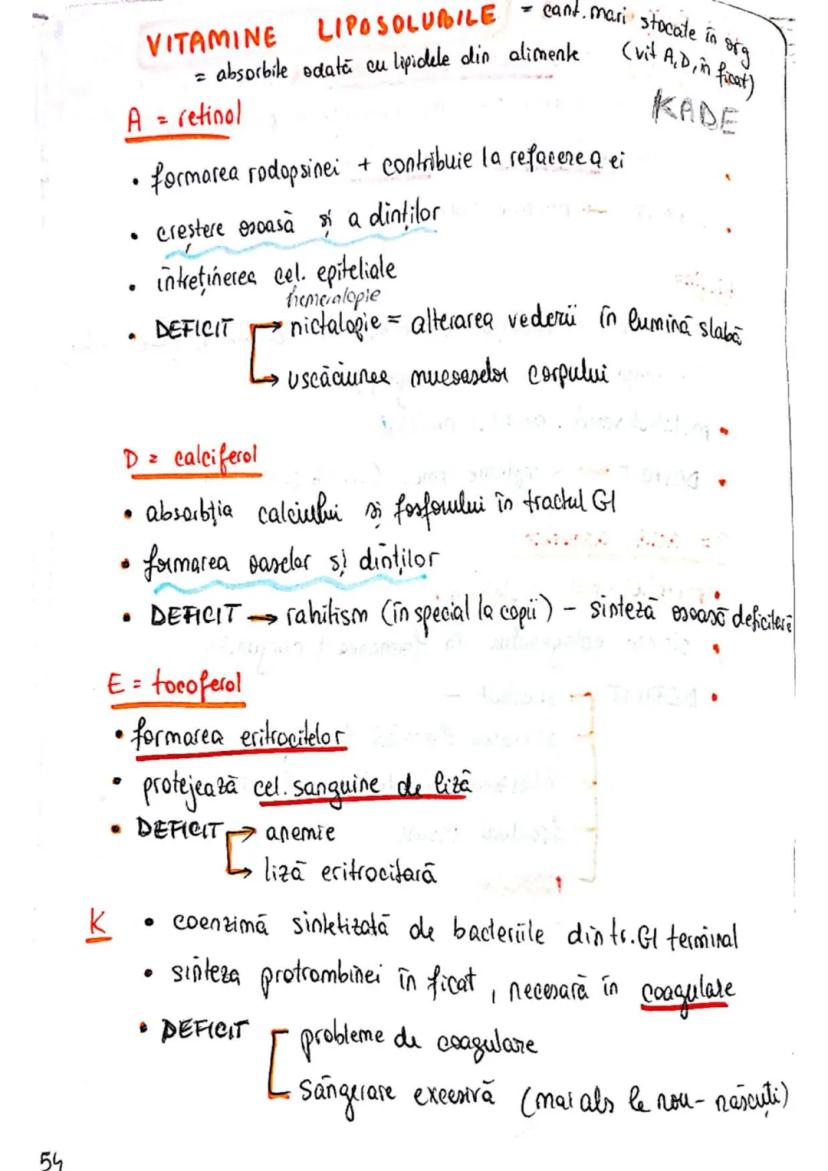 VITAMINE LIPOSOLUBILE = cant. mari stocate în org
(vit A, D, în ficat)
= absorbile odată cu lipidele din alimente
KADE
A = retinol
• formarea rodopsinei + contribuie la refacerea ei
• creștere osoasă și a dinților
• întreținerea cel. epiteliale
hemeralopie
• DEFICIT → nictalopie = alterarea vederii în lumină slabă
→ uscăciunea mucoaselor corpului
D = calciferol
• absorbția calciului și fosforului în tractul GI
• formarea oaselor și dinților
• DEFICIT → rahitism (în special la copii) - sinteză osoasă deficitară
E = tocoferol
• formarea eritrocitelor
• protejează cel. sanguine de liză
• DEFICIT → anemie
→ liză eritrocitară
K • coenzimă sintetizată de bacteriile din tr. GI terminal
• sinteza protrombinei în ficat, necesară în coagulare
• DEFICIT probleme de coagulare
sângerare excesivă (mai als la nou-născuți)
54